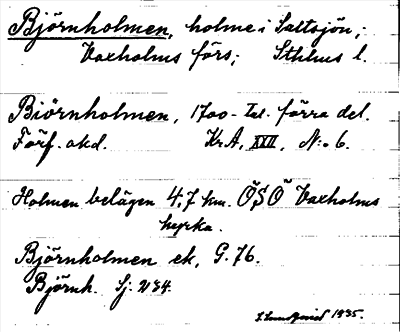 Björnholmen, holme i Saltsjön;
Vaxholms förs; Sthlms l.
Biörnholmen, 1700-tal. förra del.
Förf. okd. Kr.A, XXII, N:o 6.
Holmen belägen 4,7 km. ÖSÖ Vaxholms
kyrka.
Björnholmen ek, G. 76.
Björnh. Sj. 234.
1935.